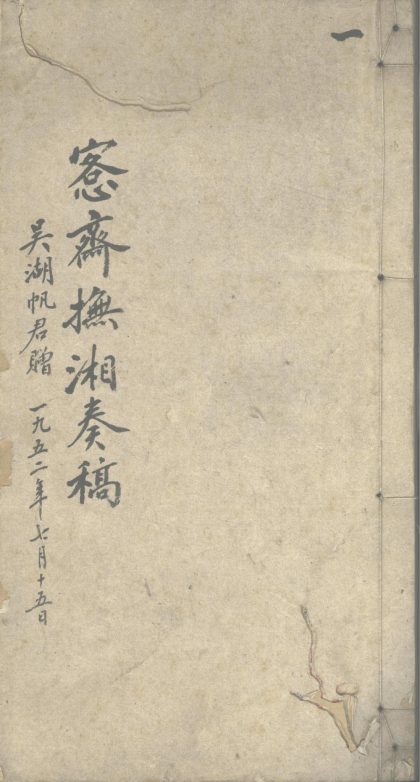 一
愙齋撫湘奏稿
吴湖帆君贈 一九五二年七月十五日